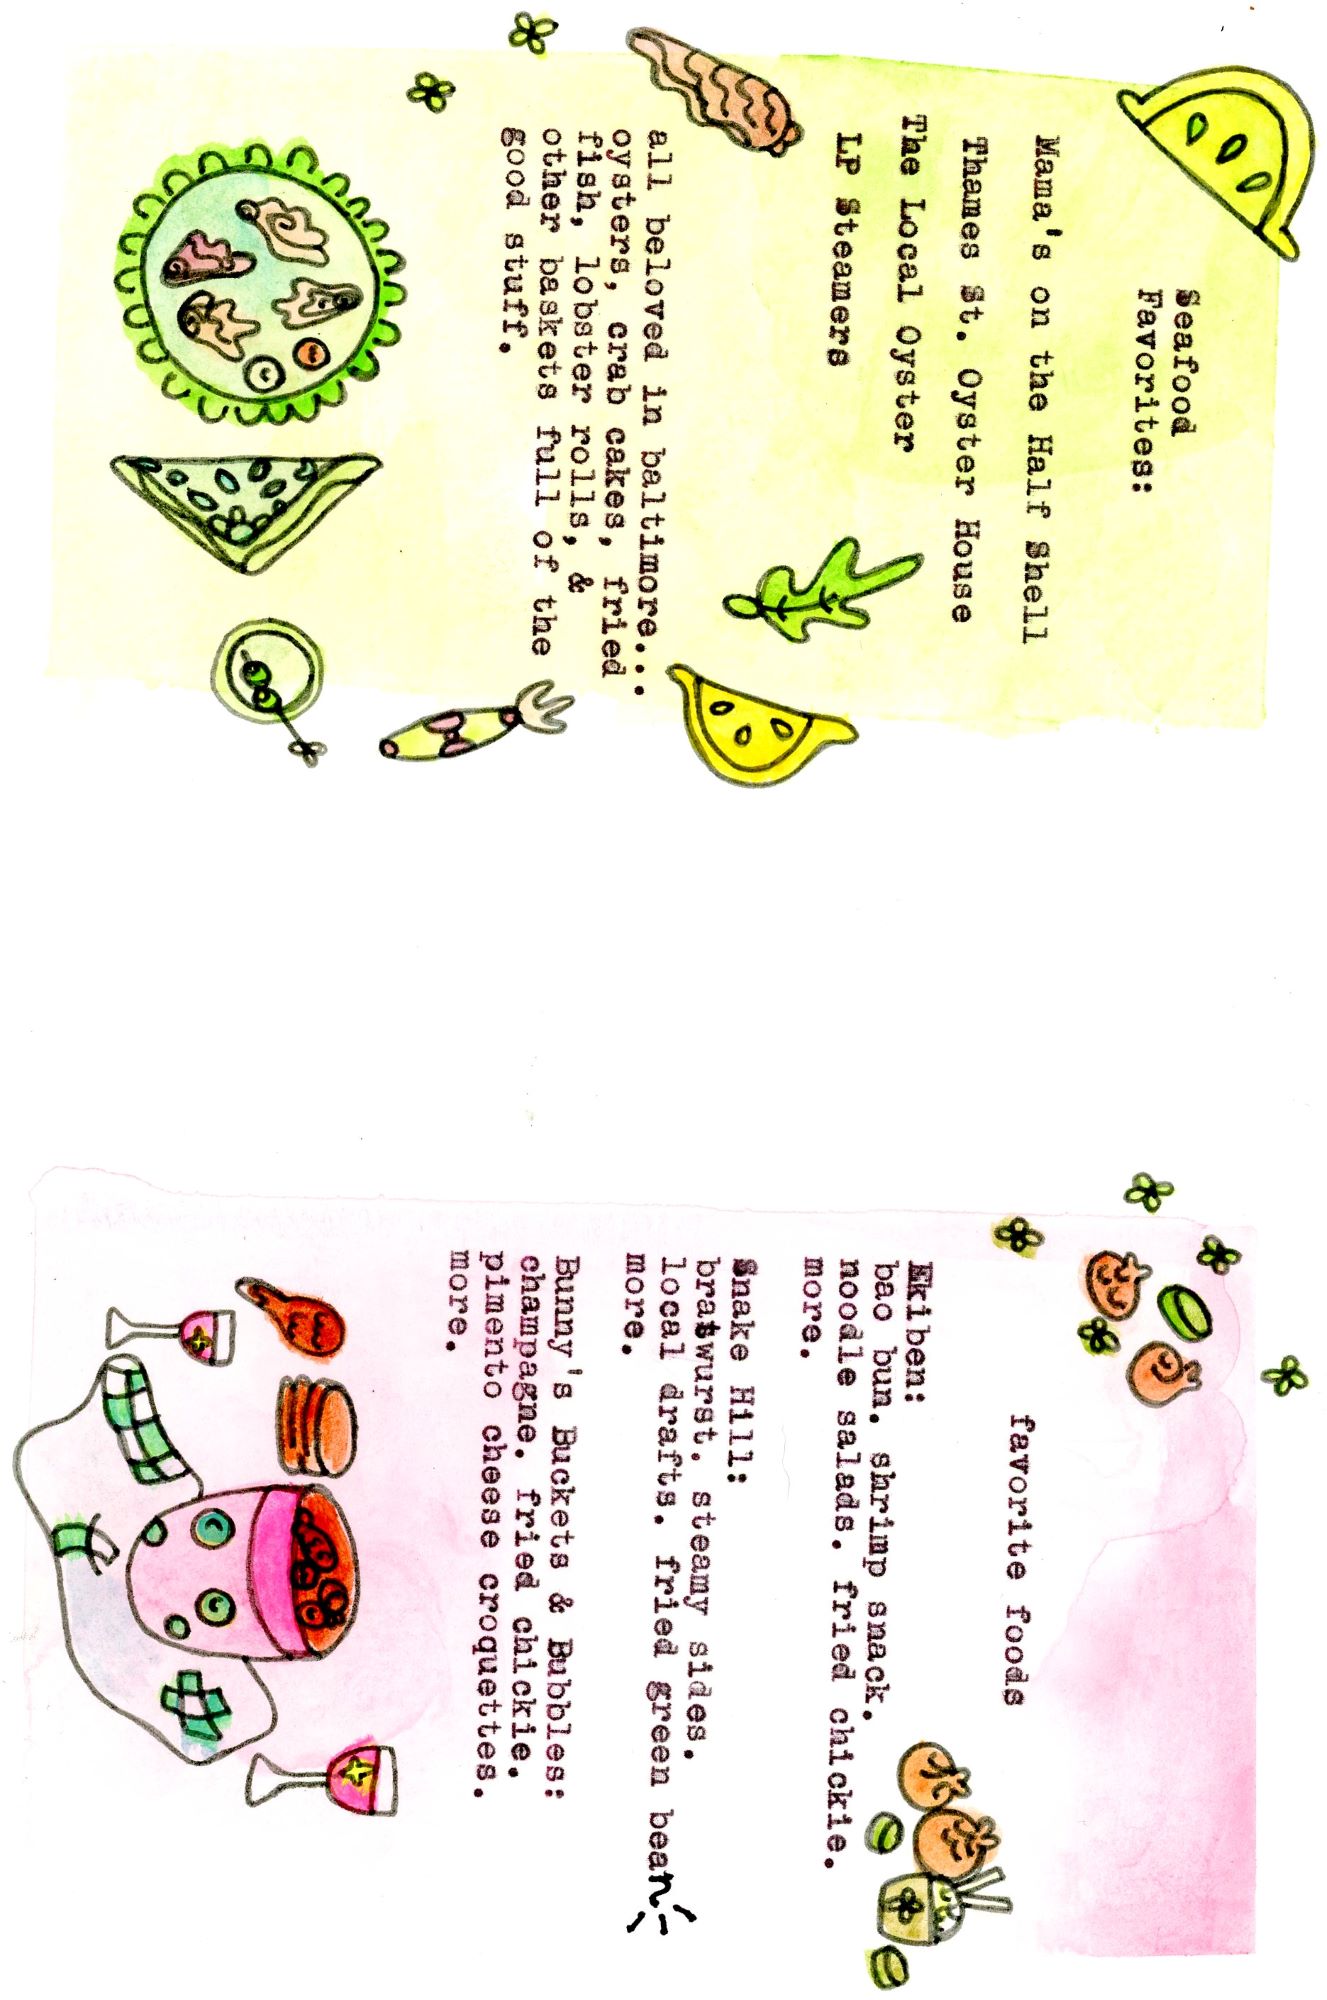 Seafood
Favorites:
Mama's on the Half Shell
Thames St. Oyster House
The Local Oyster
LP Steamers
all beloved in baltimore...
oysters, crab cakes, fried
fish, lobster rolls, &
other baskets full of the
good stuff.
favorite foods
Ekiben:
bao bun. shrimp snack.
noodle salads. fried chickie.
more.
Snake Hill:
bratwurst. steamy sides.
local drafts. fried green bean
more.
Bunny's Buckets & Bubbles:
champagne. fried chickie.
pimento cheese croquettes.
more.